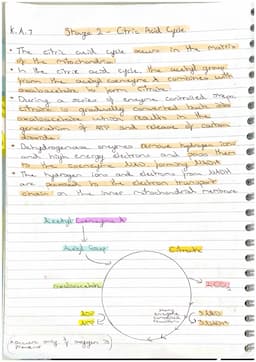 K.A.7 Stage 2 - Citric Acid Cycle
• The citric acid cycle occurs in the matrix
of the mitochondria
• In the citric acid cycle, the acetyl group
from the acetyl coenzyme A combines with
oxaloacetate to form citrate.
• During a series of enzyme controlled steps,
citrate is gradually converted back into
oxaloacetate which results in the
generation of ATP and release of carbon
dioxide
• Dehydrogenase enzymes remove hydrogen ions
and high energy electrons and pass them
to the coenzyme NAD forming NADH
• The hydrogen ions and electrons from NADH
are passed to the electron transport
chain on the inner mitochondrial membrane
Acetyl Coenzyme A
Acetyl Group Citrate
Oxaloacetate
ADP
ATP
enzyme
controlled
NAD
NADH
occurs only if oxygen is
present